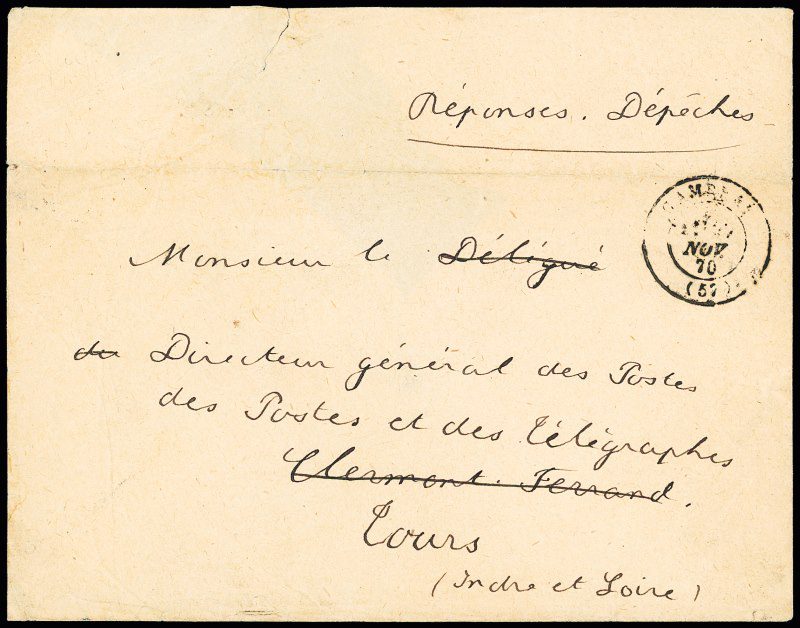 Réponses. Dépêches
CAMBRAI
NOV.
70
(57)
Monsieur le Délégué
du Directeur général des Postes
des Postes et des Télégraphes
Clermont-Ferrand.
Tours
(Indre et Loire)